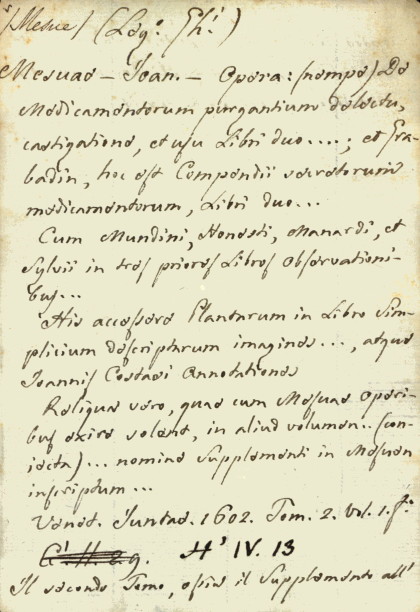 (Mesue) (Leg.° Gh.¹)
Mesuae - Joan. - Opera: (nempe) De
Medicamentorum purgantium delectu,
castigatione, et usu Libri duo....; et Gra-
badin, hoc est Compendii secretorum
medicamentorum, Libri duo...
Cum Mundini, Honesti, Manardi, et
Sylvii in tres priores Libros Observationi-
bus...
His accessere Plantarum in Libro Sim-
plicium descriptarum imagines..., atque
Joannis Costaei Annotationes
Reliqua vero, quae cum Mesuae Operi-
bus exire solent, in aliud volumen.. (con-
iecta)... nomine Supplementi in Mesuen
inscriptum...
Venet. Juntas. 1602. Tom. 2. Vol. 1. f.°
H' IV. 13
Il secondo Tomo, ossia il Supplemento all'